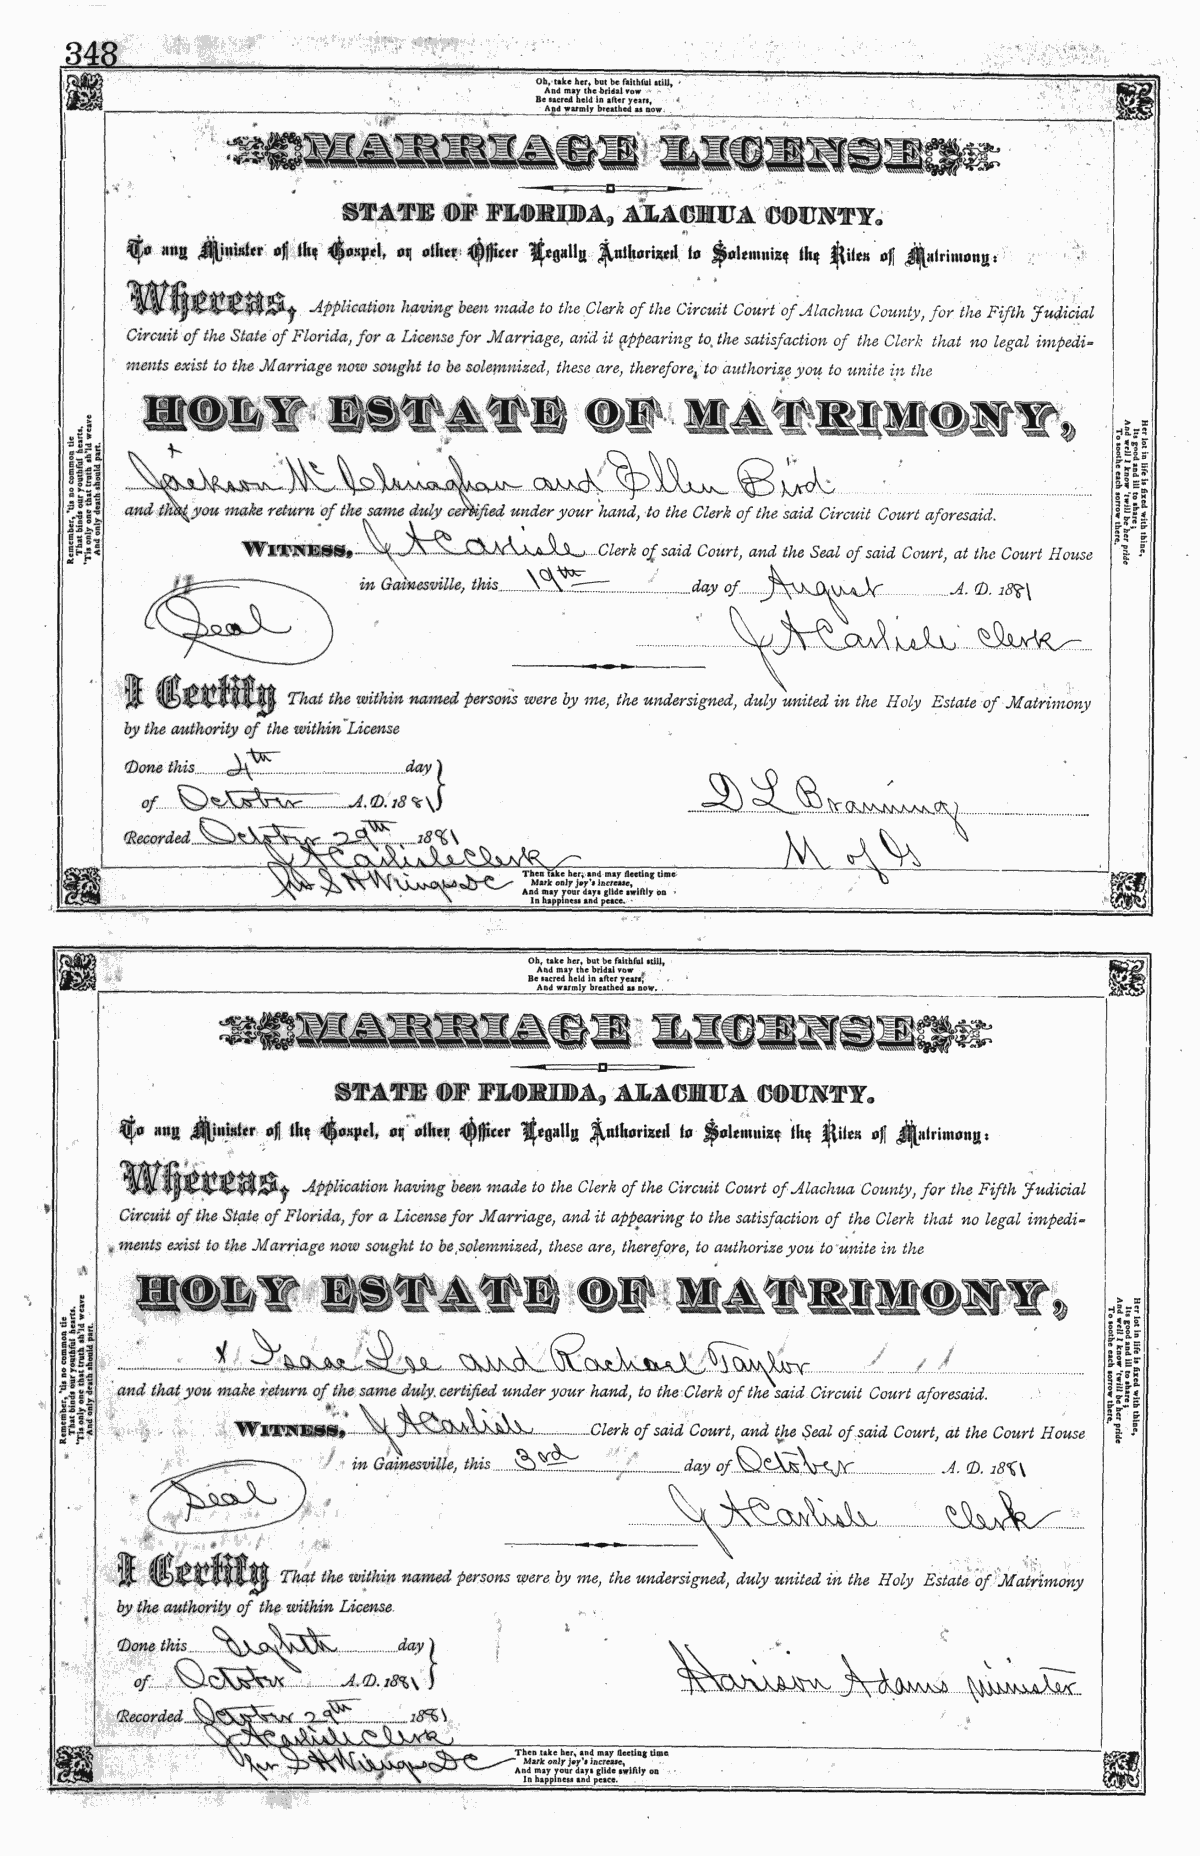 348
Oh, take her, but be faithful still,
And may the bridal vow
Be sacred held in after years,
And warmly breathed as now.
MARRIAGE LICENSE
STATE OF FLORIDA, ALACHUA COUNTY.
To any Minister of the Gospel, or other Officer Legally Authorized to Solemnize the Rites of Matrimony:
Whereas, Application having been made to the Clerk of the Circuit Court of Alachua County, for the Fifth Judicial
Circuit of the State of Florida, for a License for Marriage, and it appearing to the satisfaction of the Clerk that no legal impedi=
ments exist to the Marriage now sought to be solemnized, these are, therefore, to authorize you to unite in the
HOLY ESTATE OF MATRIMONY,
x
Jackson Mc Clenaghan and Ellen Bird
and that you make return of the same duly certified under your hand, to the Clerk of the said Circuit Court aforesaid.
WITNESS, J A Carlisle Clerk of said Court, and the Seal of said Court, at the Court House
in Gainesville, this 19th day of August A. D. 1881
Seal
J A Carlisle Clerk
I Certify That the within named persons were by me, the undersigned, duly united in the Holy Estate of Matrimony
by the authority of the within License
Done this 4th day
of October A. D. 1881
D L Branning
Recorded October 29th 1881
M of G
J A Carlisle Clerk
per S H Wienges DC
Then take her, and may fleeting time
Mark only joy's increase,
And may your days glide swiftly on
In happiness and peace.
Remember, 'tis no common tie
That binds our youthful hearts,
'Tis only one that truth sh'ld weave
And only death should part.
Her lot in life is fixed with thine,
Its good and ill to share;
And well I know 'twill be her pride
To soothe each sorrow there.
Oh, take her, but be faithful still,
And may the bridal vow
Be sacred held in after years,
And warmly breathed as now.
MARRIAGE LICENSE
STATE OF FLORIDA, ALACHUA COUNTY.
To any Minister of the Gospel, or other Officer Legally Authorized to Solemnize the Rites of Matrimony:
Whereas, Application having been made to the Clerk of the Circuit Court of Alachua County, for the Fifth Judicial
Circuit of the State of Florida, for a License for Marriage, and it appearing to the satisfaction of the Clerk that no legal impedi=
ments exist to the Marriage now sought to be solemnized, these are, therefore, to authorize you to unite in the
HOLY ESTATE OF MATRIMONY,
x Isaac Lee and Rachael Taylor
and that you make return of the same duly certified under your hand, to the Clerk of the said Circuit Court aforesaid.
WITNESS, J A Carlisle Clerk of said Court, and the Seal of said Court, at the Court House
in Gainesville, this 3rd day of October A. D. 1881
Seal
J A Carlisle Clerk
I Certify That the within named persons were by me, the undersigned, duly united in the Holy Estate of Matrimony
by the authority of the within License.
Done this Eighth day
of October A. D. 1881
Harison Adams minister
Recorded October 29th 1881
J A Carlisle Clerk
per S H Wienges DC
Then take her, and may fleeting time
Mark only joy's increase,
And may your days glide swiftly on
In happiness and peace.
Remember, 'tis no common tie
That binds our youthful hearts,
'Tis only one that truth sh'ld weave
And only death should part.
Her lot in life is fixed with thine,
Its good and ill to share;
And well I know 'twill be her pride
To soothe each sorrow there.